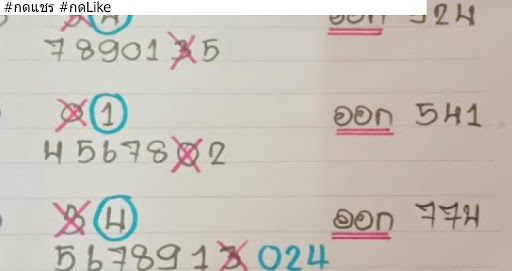 #กดแชร #กดLike
4 ออก 524
78901 3 5
0 1 ออก 541
45678 0 2
3 4 ออก 774
5678913 024